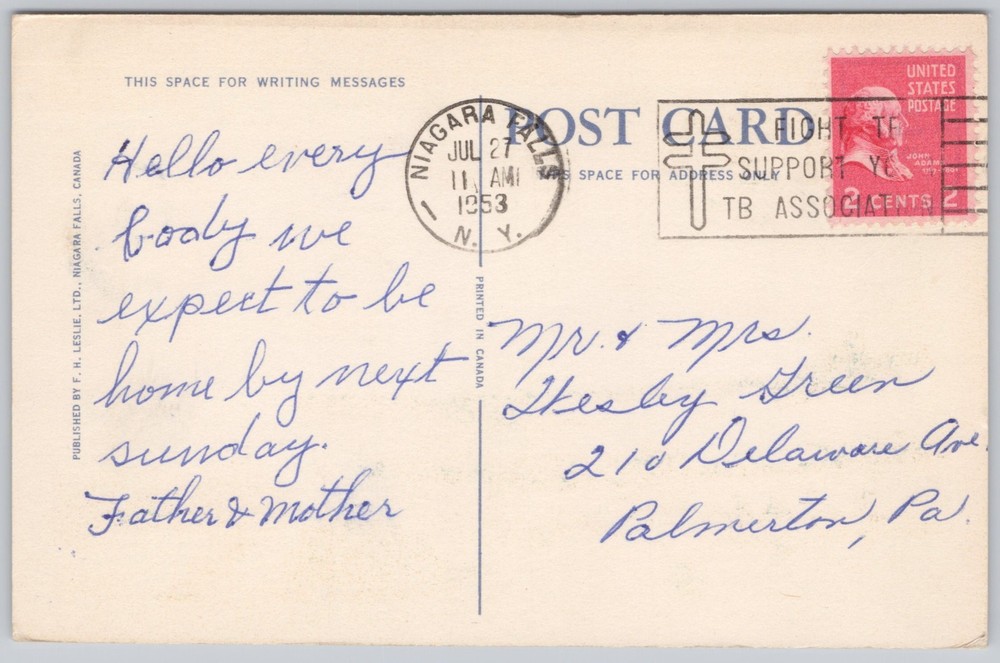 THIS SPACE FOR WRITING MESSAGES
Hello every
body we
expect to be
home by next
sunday.
Father & Mother
PUBLISHED BY F. H. LESLIE, LTD., NIAGARA FALLS, CANADA
PRINTED IN CANADA
NIAGARA FALLS
JUL 27
11 AM
1953
N. Y.
POST CARD
THIS SPACE FOR ADDRESS ONLY
FIGHT TB
SUPPORT YO
TB ASSOCIATI
UNITED
STATES
POSTAGE
JOHN
ADAMS
2 CENTS 2
Mr. & Mrs.
Wesby Green
210 Delaware Ave.
Palmerton, Pa.